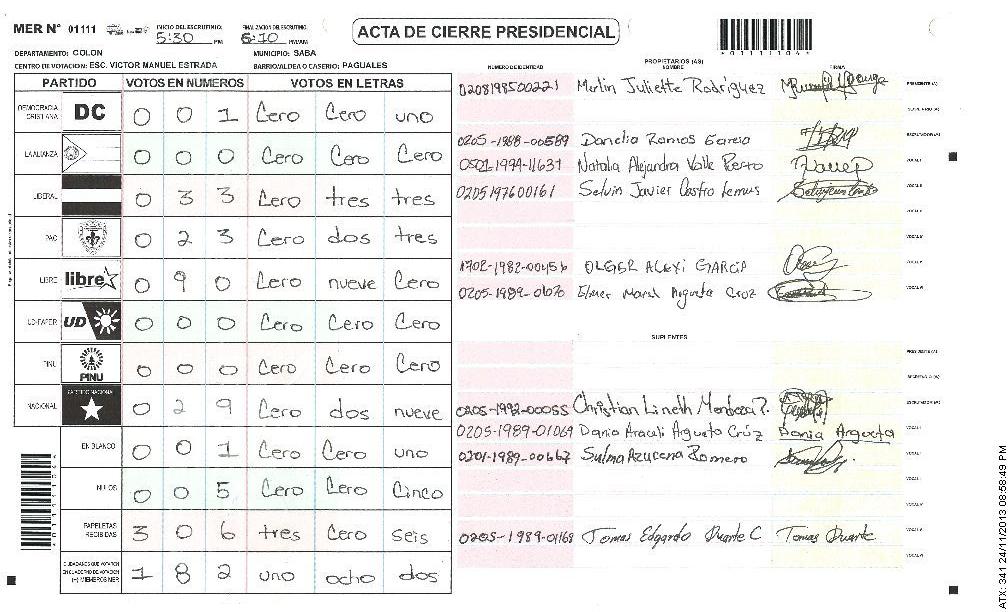 MER N° 01111 INICIO DEL ESCRUTINIO: 5:30 PM FINALIZACION DEL ESCRUTINIO: 6:10 PM/AM
ACTA DE CIERRE PRESIDENCIAL
DEPARTAMENTO: COLON MUNICIPIO: SABA
CENTRO DE VOTACION: ESC. VICTOR MANUEL ESTRADA BARRIO/ALDEA O CASERIO: PAGUALES
PARTIDO VOTOS EN NUMEROS VOTOS EN LETRAS
DEMOCRACIA CRISTIANA DC 0 0 1 Cero Cero uno
LA ALIANZA 0 0 0 Cero Cero Cero
LIBERAL 0 3 3 Cero tres tres
PAC 0 2 3 Cero dos tres
LIBRE libre 0 9 0 Cero nueve Cero
UD-FAPER UD 0 0 0 Cero Cero Cero
PINU PINU 0 0 0 Cero Cero Cero
NACIONAL PARTIDO NACIONAL 0 2 9 Cero dos nueve
EN BLANCO 0 0 1 Cero Cero uno
NULOS 0 0 5 Cero Cero Cinco
PAPELETAS RECIBIDAS 3 0 6 tres Cero seis
CIUDADANOS QUE VOTARON EN CUADERNO DE VOTACION (+) MIEMBROS MER 1 8 2 uno ocho dos
NUMERO DE IDENTIDAD PROPIETARIOS (AS) NOMBRE FIRMA
0208198500221 Merlin Juliette Rodriguez PRESIDENTE (A)
0205-1988-00589 Danelia Ramos Garcia
0501-1994-11637 Natalia Alejandra Valle
0205197600161 Selvin Javier Castro Lemus
1702-1982-00456 OLGER ALEXI GARCIA
0205-1989-01070 Elmer Argueta Cruz
SUPLENTES
0205-1992-00055 Christian Lineth Mendoza P.
0205-1989-01069 Dania Araceli Argueta Crúz Dania Argueta
0201-1989-00667 Sulma Azucena Romero
0205-1989-01168 Tomas Edgardo Duarte C Tomas Duarte
ATX: 341 24/11/2013 08:58:49 PM